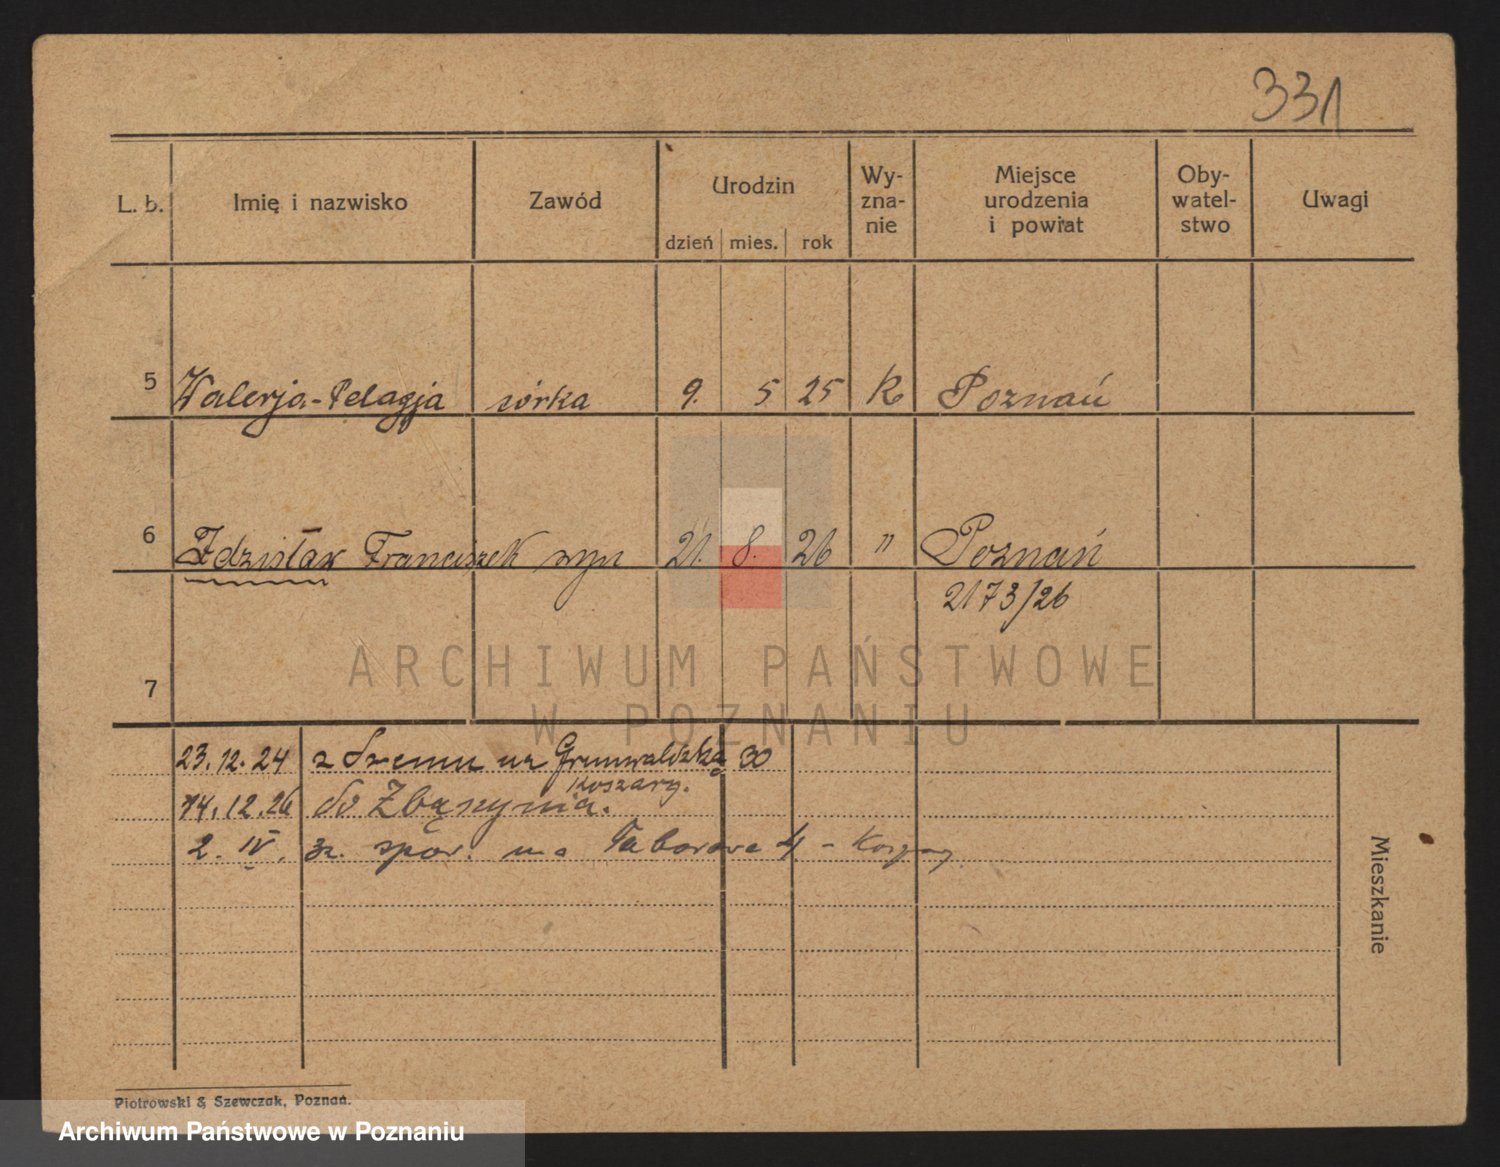 331
L. b. Imię i nazwisko Zawód Urodzin dzień mies. rok Wy-zna-nie Miejsce urodzenia i powiat Oby-watel-stwo Uwagi
5 Walerja-Pelagja córka 9. 5 25 R Poznań
6 Zdzisław Franciszek syn 21. 8. 26 " Poznań
2173/26
7
ARCHIWUM PAŃSTWOWE
W POZNANIU
23.12.24 z Śremu na Grunwaldzką 30
Koszary.
14.12.26 do Zbąszynia.
2. IV. spow. na Taborowa 4 -
Mieszkanie
Piotrowski & Szewczak, Poznań.
Archiwum Państwowe w Poznaniu